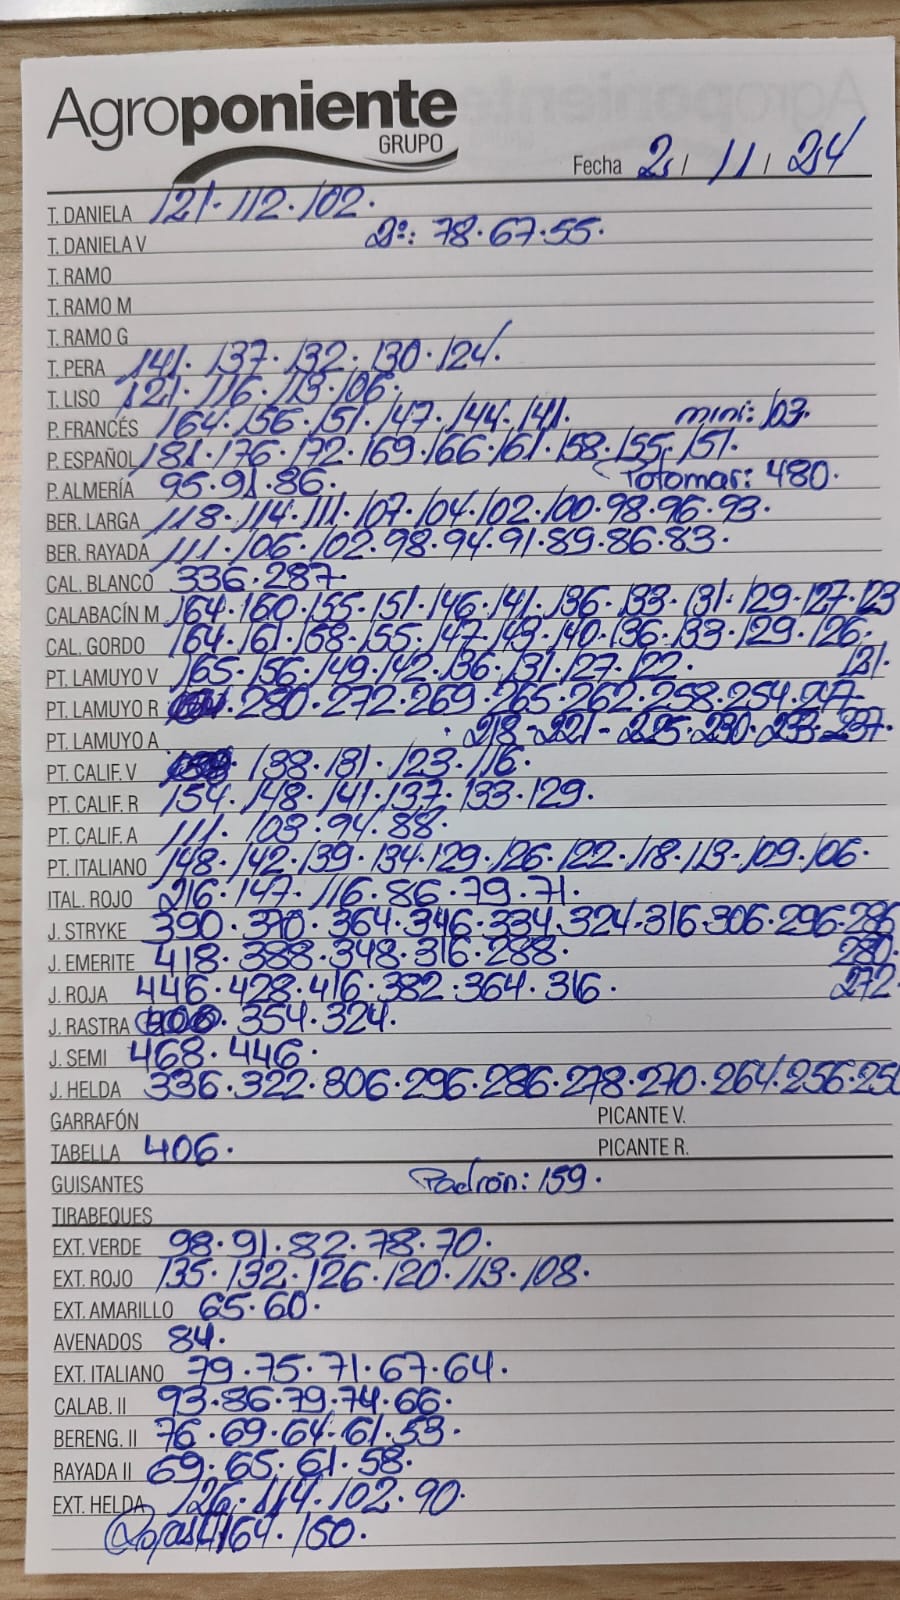 Agroponiente
GRUPO
Fecha 2 / 11 / 24
T. DANELA 121 · 112 · 102 ·
T. DANIELA V 2º: 78 · 67 · 55 ·
T. RAMO
T. RAMO M
T. RAMO G
T. PERA 141 · 137 · 132 · 130 · 124 ·
T. LISO 121 · 116 · 113 · 106 ·
P. FRANCÉS 164 · 156 · 151 · 147 · 144 · 141 · mini: 103 ·
P. ESPAÑOL 181 · 176 · 172 · 169 · 166 · 161 · 158 · 155 · 151 ·
P. ALMERÍA 95 · 91 · 86 · Potomar: 480 ·
BER. LARGA 118 · 114 · 111 · 107 · 104 · 102 · 100 · 98 · 96 · 93 ·
BER. RAYADA 111 · 106 · 102 · 98 · 94 · 91 · 89 · 86 · 83 ·
CAL. BLANCO 336 · 287 ·
CALABACÍN M 164 · 160 · 155 · 151 · 146 · 141 · 136 · 133 · 131 · 129 · 127 · 123
CAL. GORDO 164 · 161 · 158 · 155 · 147 · 143 · 140 · 136 · 133 · 129 · 126 ·
PT. LAMUYO V 165 · 156 · 149 · 142 · 136 · 131 · 127 · 122 · 121 ·
PT. LAMUYO R 280 · 272 · 269 · 265 · 262 · 258 · 254 · 247
PT. LAMUYO A · 218 - 221 - 225 · 230 · 233 · 237 ·
PT. CALIF. V 138 · 131 · 123 · 116 ·
PT. CALIF. R 154 · 148 · 141 · 137 · 133 · 129 ·
PT. CALIF. A 111 · 103 · 94 · 88 ·
PT. ITALIANO 148 · 142 · 139 · 134 · 129 · 126 · 122 · 118 · 113 · 109 · 106 ·
ITAL. ROJO 216 · 147 · 116 · 86 · 79 · 71 ·
J. STRYKE 390 · 370 · 364 · 346 · 334 · 324 · 316 · 306 · 296 · 286
J. EMERITE 418 · 388 · 348 · 316 · 288 · 280 ·
J. ROJA 446 · 428 · 416 · 382 · 364 · 316 · 272 ·
J. RASTRA 406 · 354 · 324 ·
J. SEMI 468 · 446 ·
J. HELDA 336 · 322 · 306 · 296 · 286 · 278 · 270 · 264 · 256 · 250
GARRAFÓN PICANTE V.
TABELLA 406 · PICANTE R.
GUISANTES Padrón: 159 ·
TIRABEQUES
EXT. VERDE 98 · 91 · 82 · 78 · 70 ·
EXT. ROJO 135 · 132 · 126 · 120 · 113 · 108 ·
EXT. AMARILLO 65 · 60 ·
AVENADOS 84 ·
EXT. ITALIANO 79 · 75 · 71 · 67 · 64 ·
CALAB. II 93 · 86 · 79 · 74 · 66 ·
BERENG. II 76 · 69 · 64 · 61 · 53 ·
RAYADA II 69 · 65 · 61 · 58 ·
EXT. HELDA 126 · 114 · 102 · 90 ·
164 · 150 ·